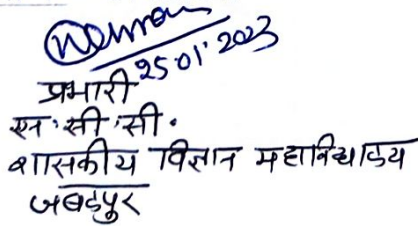 25.01.2023
प्रभारी
एन. सी. सी.
शासकीय विज्ञान महाविद्यालय
जबलपुर